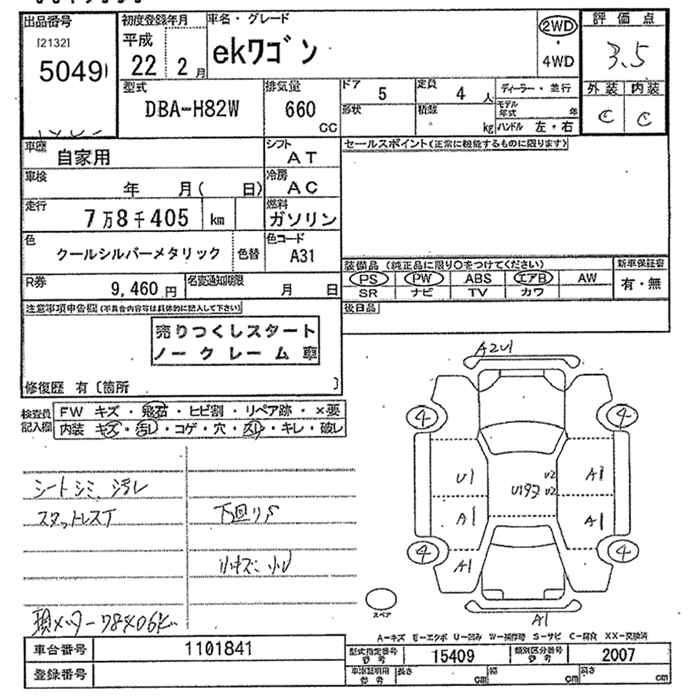 出品番号 初度登録年月 車名・グレード 2WD・4WD 評価点
[2132]
5049 平成 22年 2月 ekワゴン 3.5
型式 DBA-H82W 排気量 660 CC ドア 5 定員 4 人 ディーラー・並行 外装 内装
形状 積載 kg モデル年式 年 ハンドル 左・右 C C
車歴 自家用 シフト AT セールスポイント(正常に機能するものに限ります)
車検 年 月( 日) 冷房 AC
走行 7万8千405 km 燃料 ガソリン
色 クールシルバーメタリック 色替 色コード A31
装備品(純正品に限り○をつけてください) 新車保証書
R券 9,460円 名変通知期限 月 日 PS PW ABS エアB AW 有・無
SR ナビ TV カワ
注意事項申告欄(不具合内容等は具体的に記入して下さい) 後日品
売りつくしスタート
ノークレーム車
修復歴 有〔箇所 〕
検査員記入欄 FW キズ・飛石・ヒビ割・リペア跡・×要
内装 キズ・汚レ・コゲ・穴・スレ・キレ・破レ
A2U1
4 4
U1 U2 A1
U197 U2
A1 A1
4 4
A1
A1
スペア
シートシミ、汚レ
スタットレスT 下回リS
小キズ 小U
現メーター78406K
A-キズ E-エクボ U-凹み W-補修跡 S-サビ C-腐食 XX-交換済
車台番号 1101841 型式指定番号 参考 15409 類別区分番号 参考 2007
登録番号 車庫証明用 参考 長さ cm 幅 cm 高さ cm